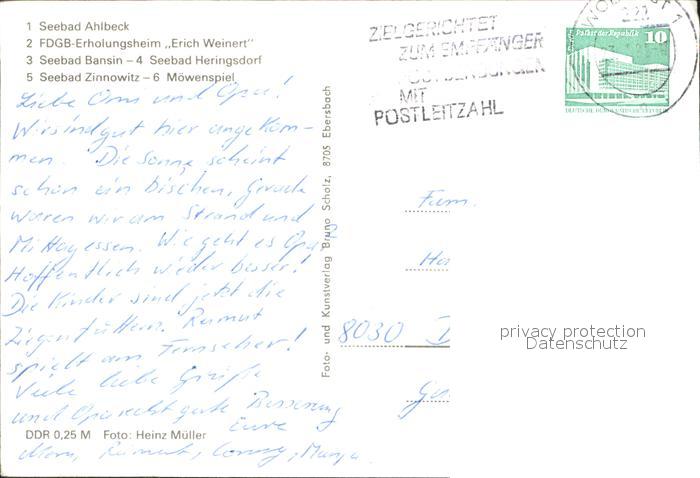 1 Seebad Ahlbeck
2 FDGB-Erholungsheim „Erich Weinert"
3 Seebad Bansin – 4 Seebad Heringsdorf
5 Seebad Zinnowitz – 6 Möwenspiel
Liebe Oma und Opa!
Wir sind gut hier angekom-
men. Die Sonne scheint
schon ein bischen, gerade
waren wir am Strand und
Mittagessen. Wie geht es Opa?
Hoffentlich wieder besser!
Die Kinder sind jetzt die
Ziegen füttern. Reimut
spielt am Fernseher!
Viele liebe Grüße
und Opa recht gute Besserung
Eure
Reimut, Conny, Manja
DDR 0,25 M Foto: Heinz Müller
Foto- und Kunstverlag Bruno Scholz, 8705 Ebersbach
ZIELGERICHTET
ZUM EMPFÄNGER
MIT
POSTLEITZAHL
WOLGAST 1
Palast der Republik 10
DEUTSCHE DEMOKRATISCHE REPUBLIK
Fam.
8030
privacy protection
Datenschutz